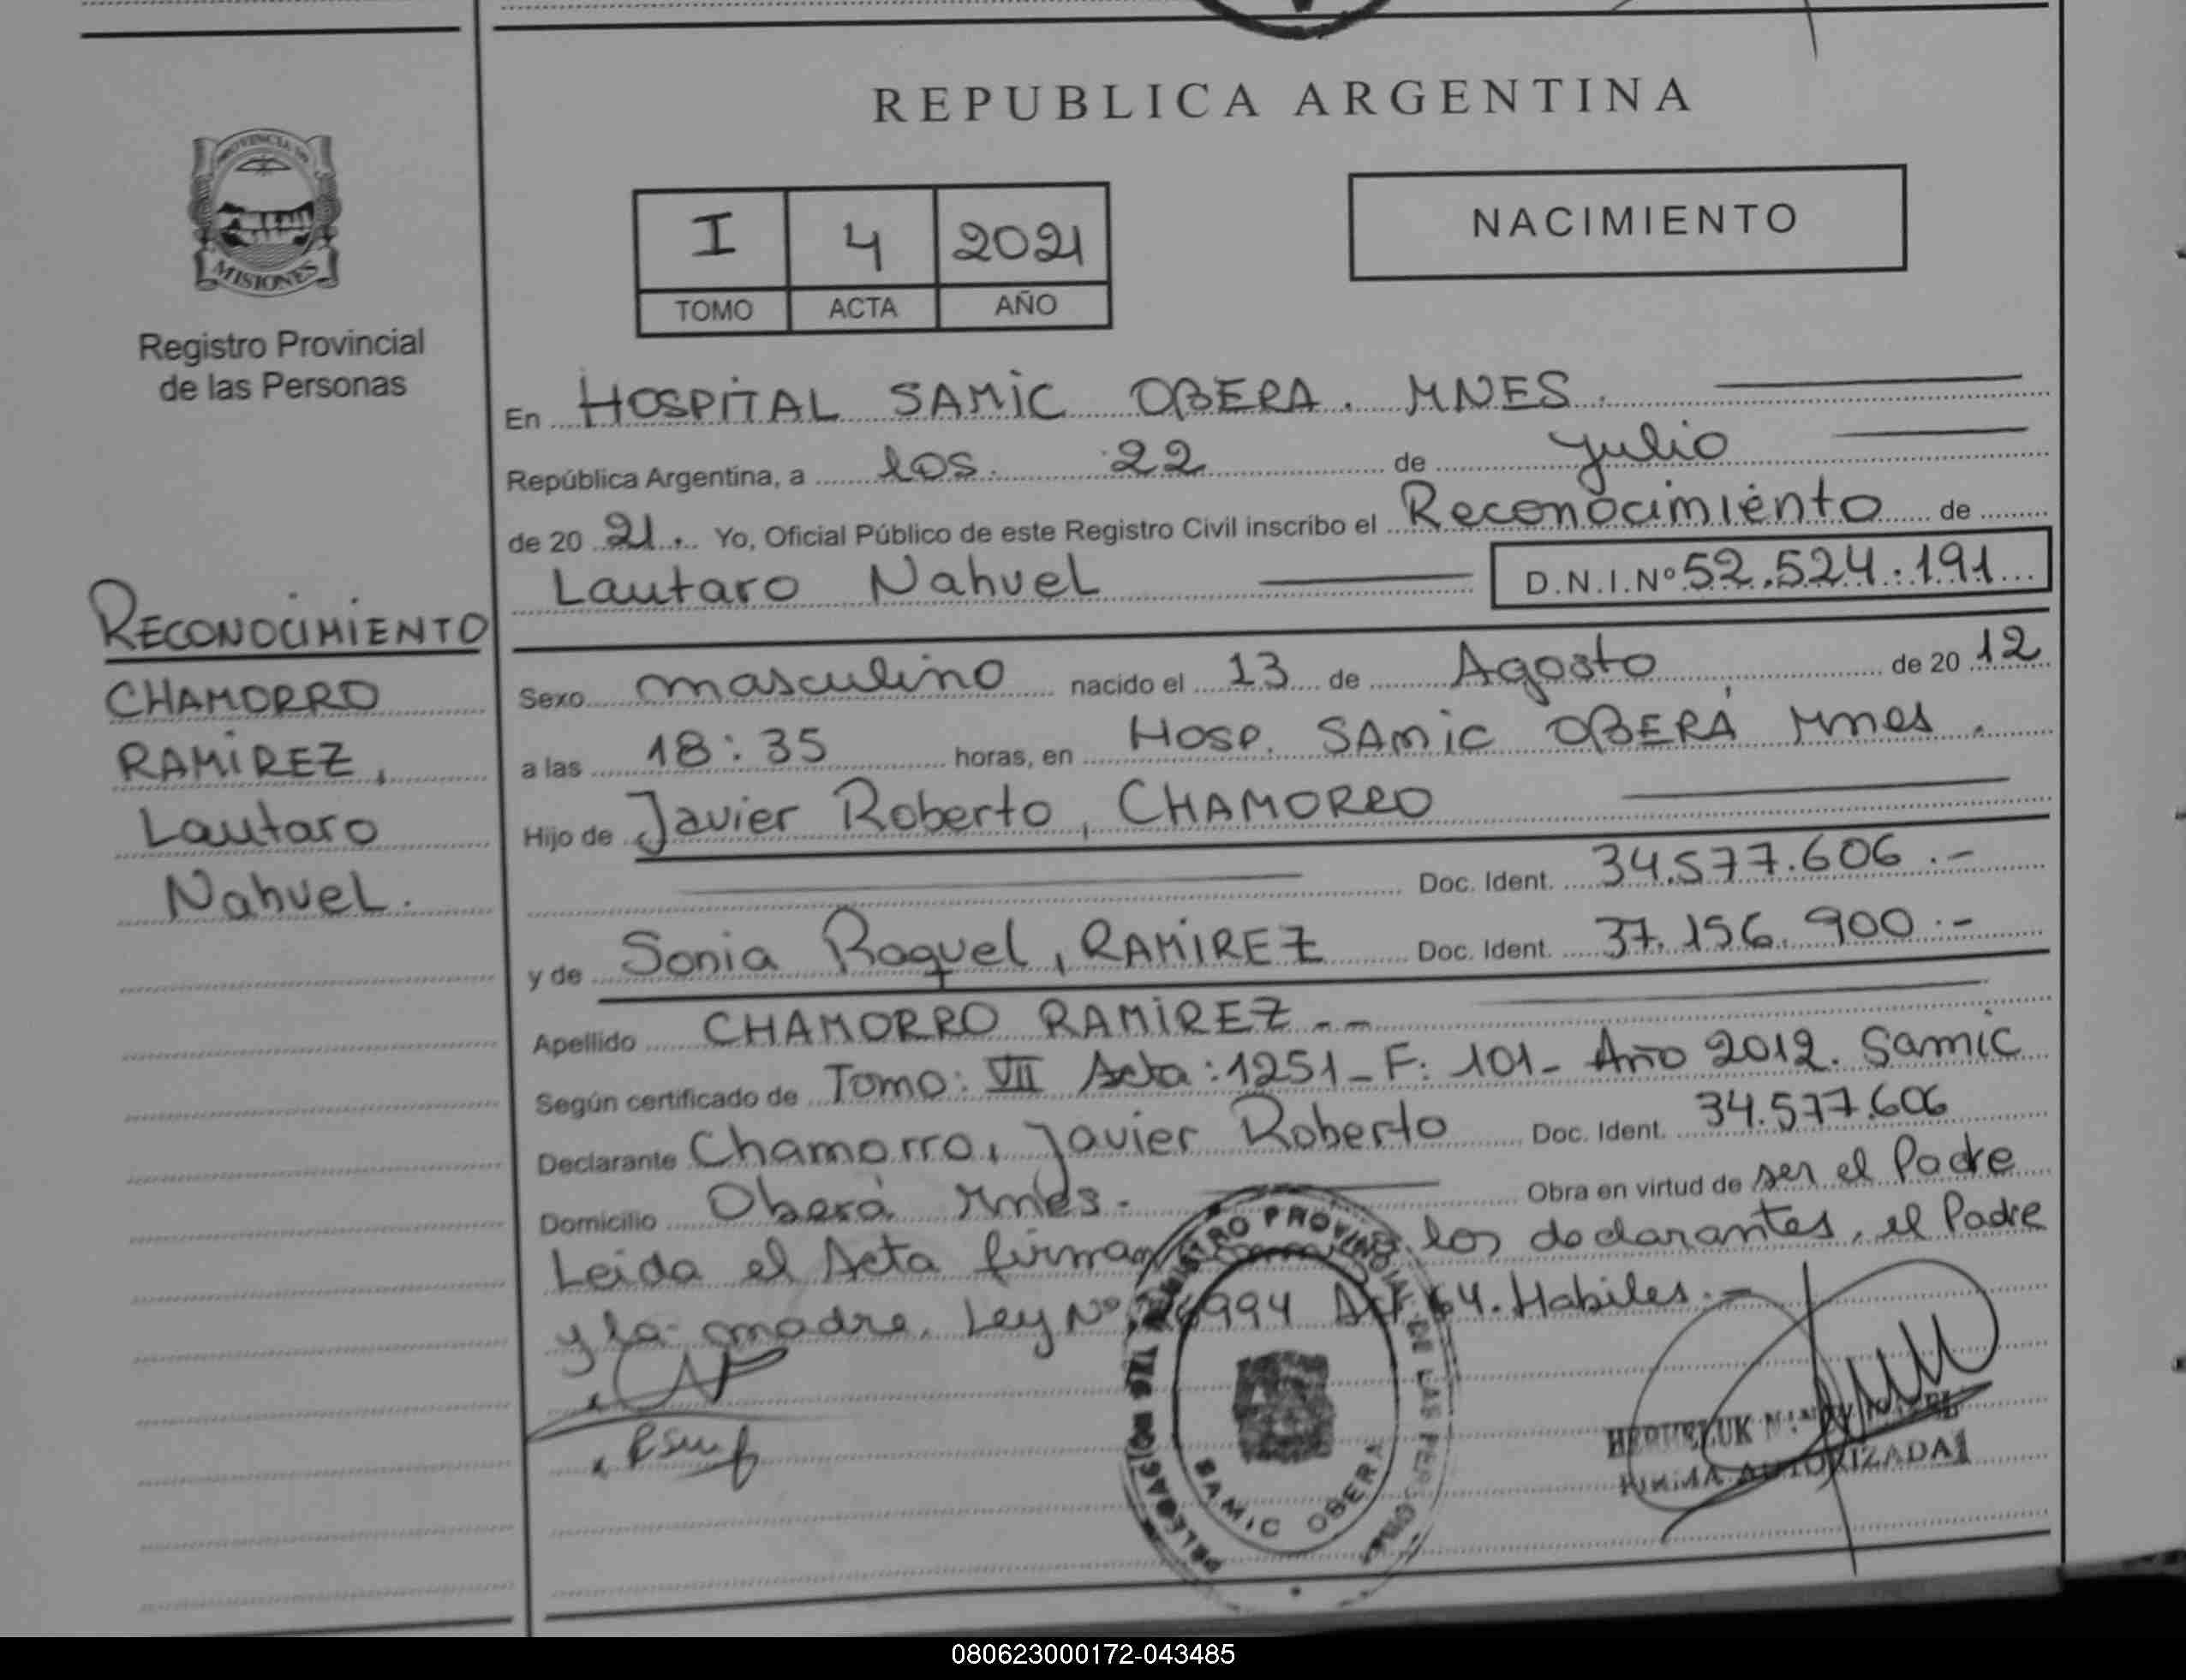 REPUBLICA ARGENTINA
PROVINCIA DE
MISIONES
Registro Provincial
de las Personas
I 4 2021
TOMO ACTA AÑO
NACIMIENTO
RECONOCIMIENTO
CHAMORRO
RAMIREZ,
Lautaro
Nahuel.
En HOSPITAL SAMIC OBERA. MNES.
República Argentina, a los 22 de julio
de 20 21. Yo, Oficial Público de este Registro Civil inscribo el Reconocimiento de
Lautaro Nahuel D.N.I.Nº 52.524.191
Sexo masculino nacido el 13 de Agosto de 20 12
a las 18:35 horas, en Hosp. SAMIC OBERÁ Mnes.
Hijo de Javier Roberto, CHAMORRO
Doc. Ident. 34.577.606.-
y de Sonia Raquel, RAMIREZ Doc. Ident. 37.156.900.-
Apellido CHAMORRO RAMIREZ--
Según certificado de Tomo: VII Acta: 1251-F: 101- Año 2012. Samic
Declarante Chamorro, Javier Roberto Doc. Ident. 34.577.606
Domicilio Oberá Mnes.- Obra en virtud de ser el Padre
Leida el Acta firman los declarantes, el Padre
y la madre. Ley Nº 26994 Art 64. Habiles.-
REGISTRO PROVINCIAL DE LAS PERSONAS
SAMIC OBERA
FIRMA AUTORIZADA
080623000172-043485